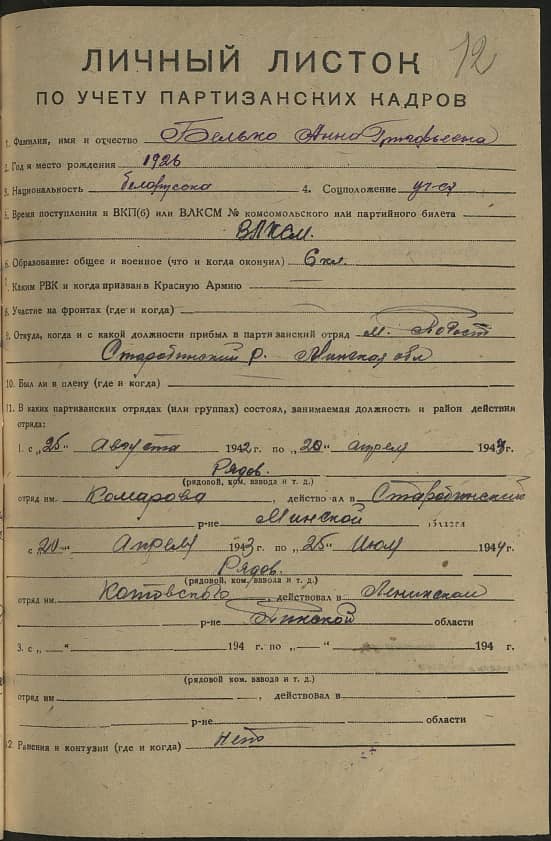 12
ЛИЧНЫЙ ЛИСТОК
ПО УЧЕТУ ПАРТИЗАНСКИХ КАДРОВ
1. Фамилия, имя и отчество Белько Анна
2. Год и место рождения 1926
3. Национальность белоруска 4. Соцположение уч-ся
5. Время поступления в ВКП(б) или ВЛКСМ № комсомольского или партийного билета
ВЛКСМ.
6. Образование: общее и военное (что и когда окончил) 6 кл.
7. Каким РВК и когда призван в Красную Армию
8. Участие на фронтах (где и когда)
9. Откуда, когда и с какой должности прибыл в партизанский отряд м. Погост
Старобинский р. Минская обл
10. Был ли в плену (где и когда)
11. В каких партизанских отрядах (или группах) состоял, занимаемая должность и район действия
отряда:
1. с „25 Августа 1942 г. по „20" апреля 1943 г.
Рядов.
(рядовой, ком. взвода и т. д.)
отряд им. Комарова , действовал в Старобинский
р-не Минской области
с „20" Апреля 1943 г. по „25" Июля 1944 г.
Рядов.
(рядовой, ком. взвода и т. д.)
отряд им. Котовского , действовал в Ленинском
р-не Пинской области
3. с „ — " 194 г. по „ — " 194 г.
(рядовой ком. взвода и т. д.)
отряд им. , действовал в
р-не области
12. Ранения и контузии (где и когда) нет